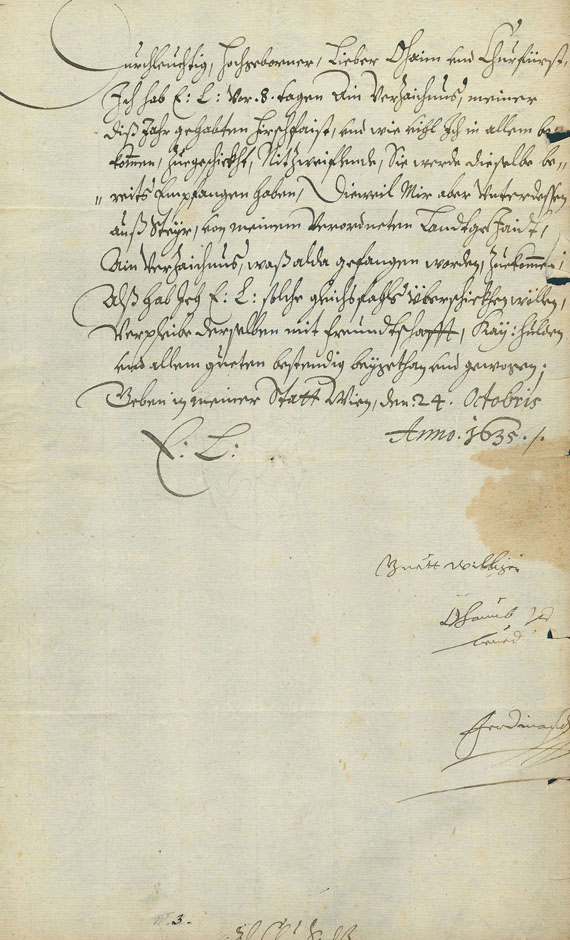 Durchleuchtig, Hochgeborner, Lieber Ohaim und Churfürst,
Ich hab E: L: vor. 8. tagen Ain Verzaichnus, meiner
diß Jahr gehabten Hirschfaist, und wie vihl Ich in allem be
kommen, zuegeschickht, Nit zweiflende, Sie werde dieselbe be„
„ reits Empfangen haben, Dieweil Mir aber Unterdessen
auß Steyr, von meinem verordneten Landtge Jaidt,
Ain Verzaichnus, waß alda gefangen worden, zuekommen;
Alß hab Ich E: L: solche gleichsfahls überschickhen wöllen,
Verpleibe derselben mit freundtschafft, Kay: hulden
und allem gueten bestendig beygethan und gewogen;
Geben in meiner Statt Wien, den. 24. Octobris
Anno. 1635. /.
E: L:
Guett williger
Ohaimb
Ferdinand
3.